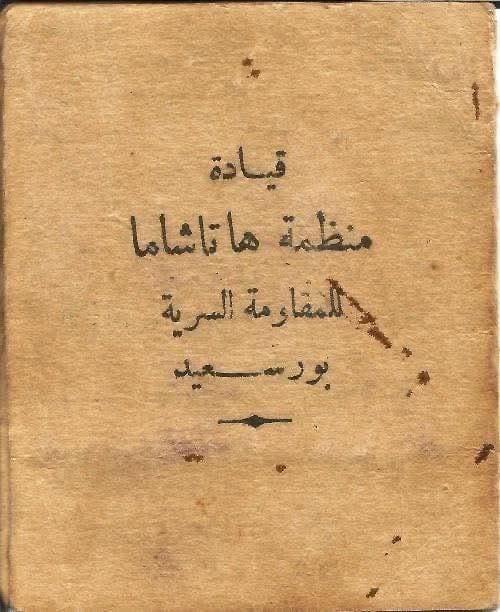 قيادة
منظمة هاتاشاما
للمقاومة السرية
بورسعيد